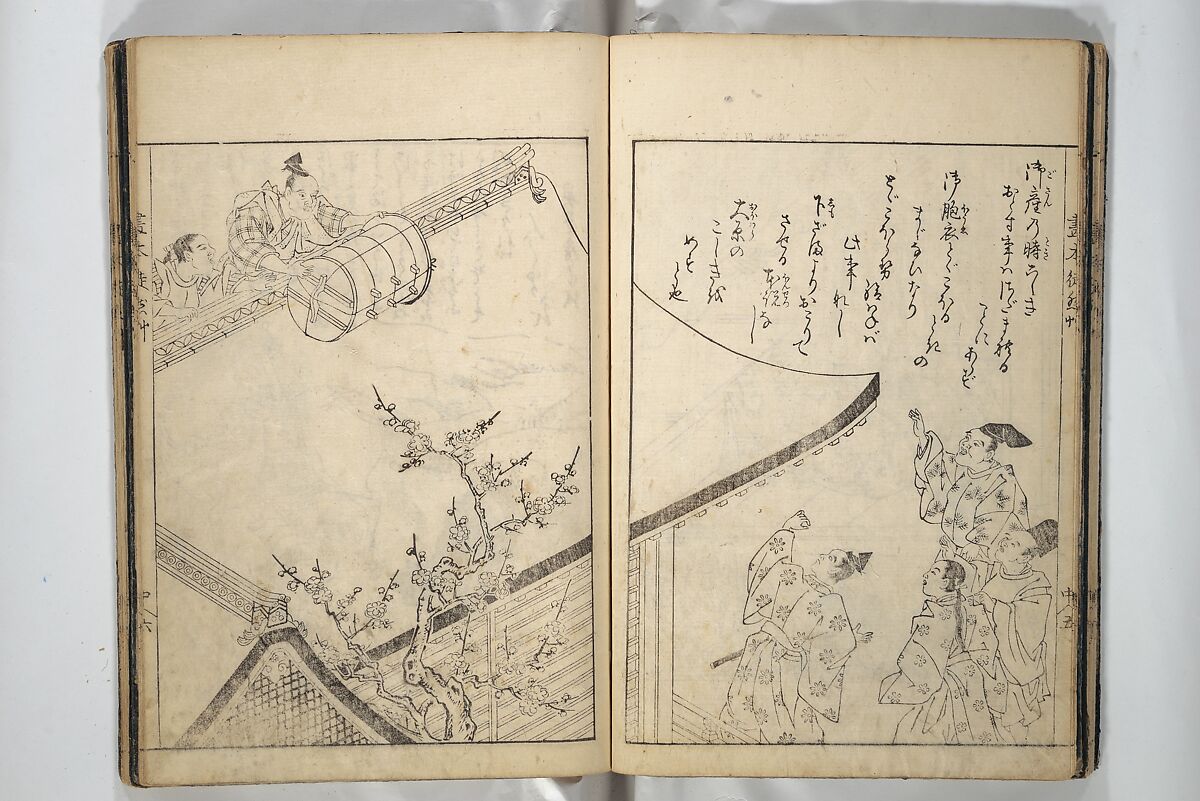 御産の時こしき
おとす事ハさだまれる
ことにあらず
御胞衣とゞこほるときの
まじなひなり
とゞこほらせ給ハねバ
此事なし
下ざまよりおこりて
させる本説なし
大原の
こしきを
めす也
畫本徒然艸
中ノ五
畫本徒然艸
中ノ六